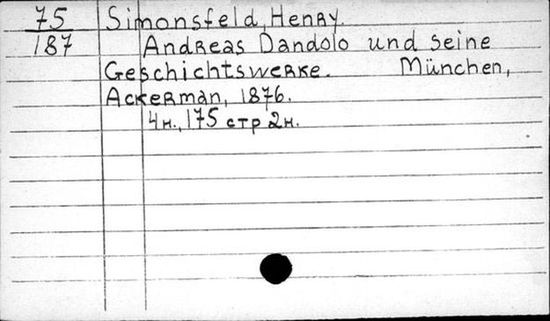 75 Simonsfeld, Henry.
187 Andreas Dandolo und seine
Geschichtswerke. München,
Ackerman, 1876.
4н., 175 стр 2н.